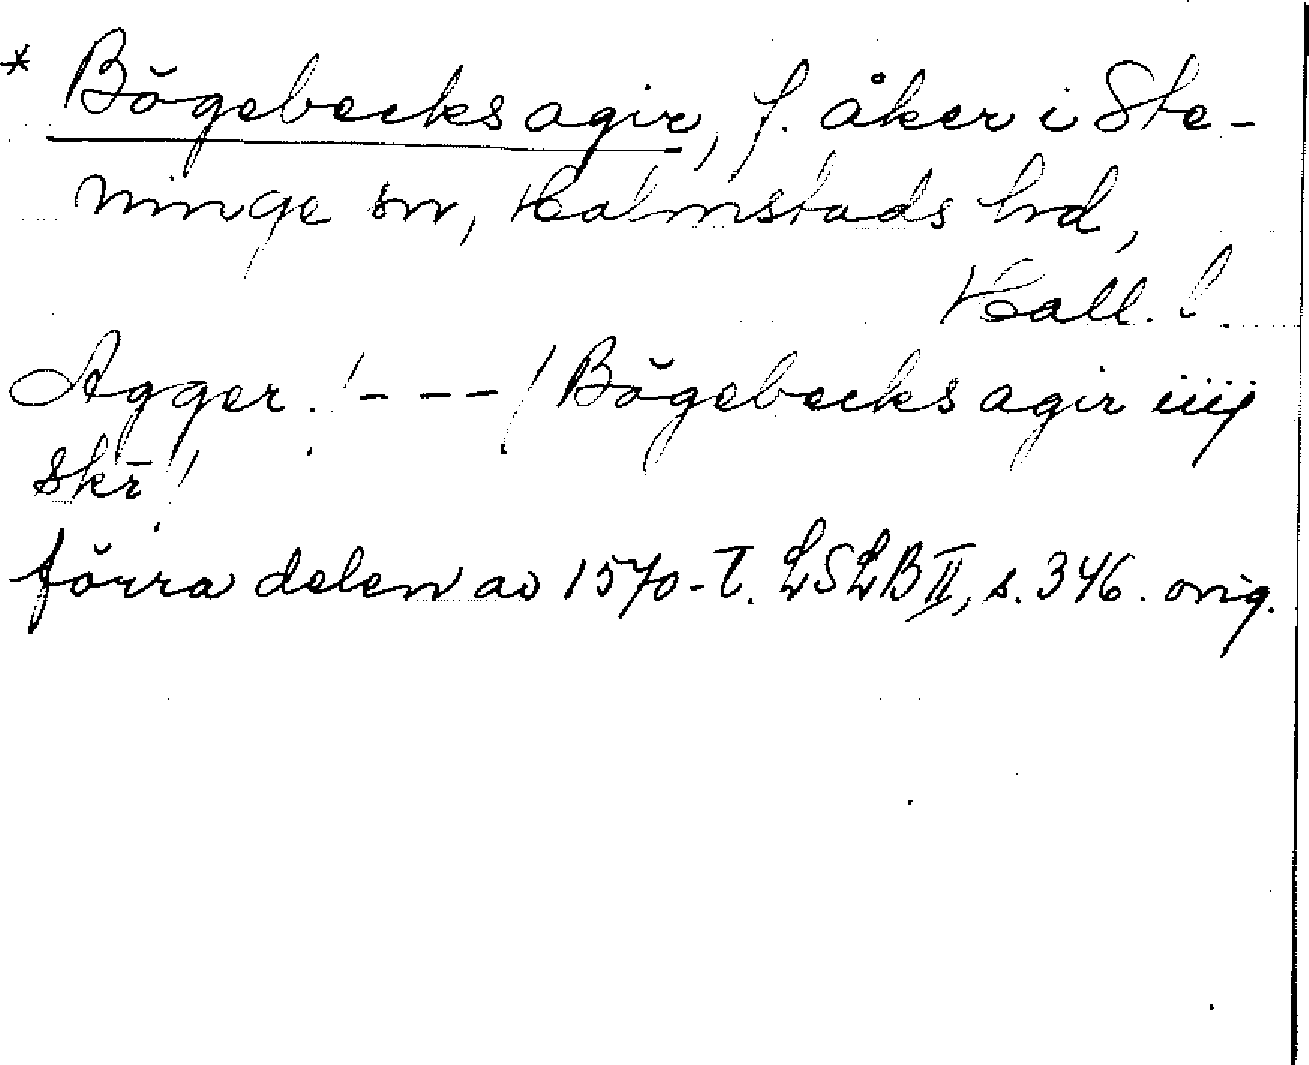 * Bögebecks agir, f. åker i Ste-
ninge sn, Halmstads hd,
Hall.!
Agger! - - - / Bögebecks agir iiij
skr̄!
förra delen av 1570-t. LSLB II, s. 346. orig.